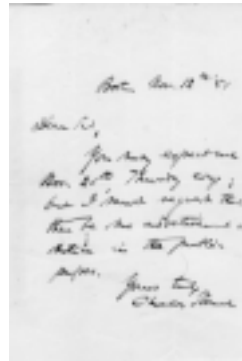 Boston Nov. 12th '51
Dear Sir,
You may expect me
Nov. 20th Thursday evg;
but I must request that
there be no advertisement or
notice in the public
papers.
Yours truly,
Charles Sumner